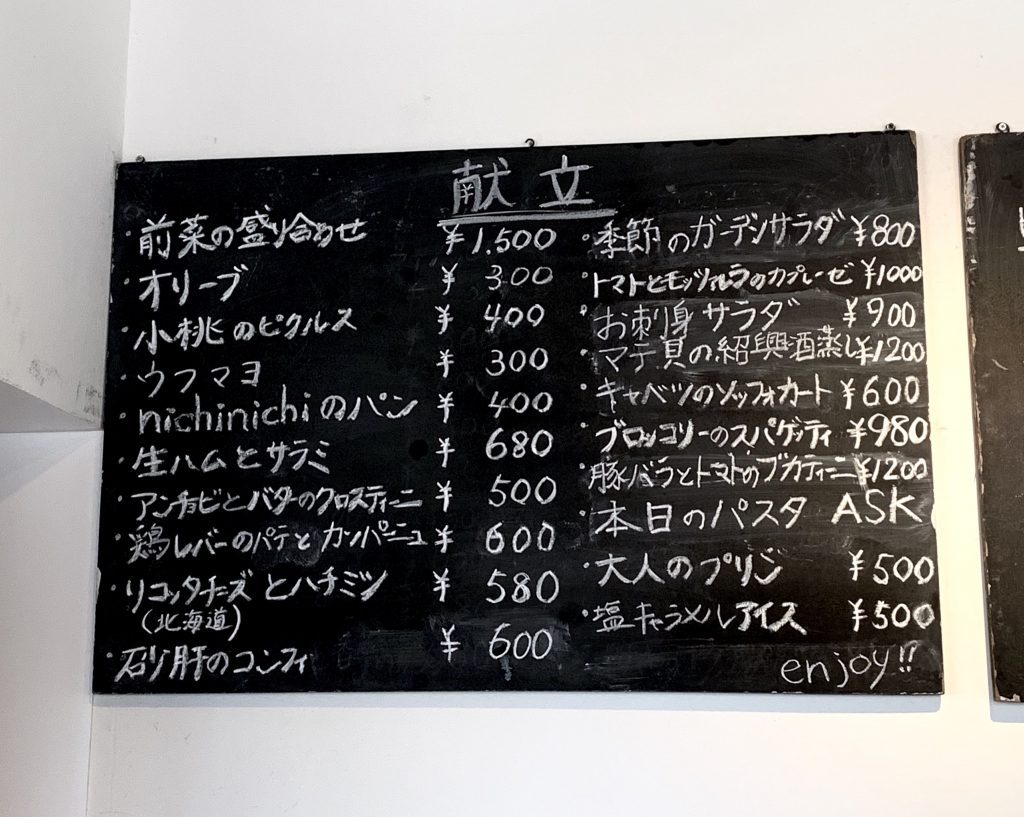 献立
・前菜の盛り合わせ ¥1.500
・オリーブ ¥300
・小桃のピクルス ¥400
・ウフマヨ ¥300
・nichinichiのパン ¥400
・生ハムとサラミ ¥680
・アンチョビとバターのクロスティーニ ¥500
・鶏レバーのパテとカンパーニュ ¥600
・リコッタチーズとハチミツ ¥580
(北海道)
・砂肝のコンフィ ¥600
・季節のガーデンサラダ ¥800
トマトとモッツァレラのカプレーゼ ¥1000
・お刺身サラダ ¥900
マテ貝の紹興酒蒸し ¥1200
・キャベツのソッフォカート ¥600
・ブロッコリーのスパゲッティ ¥980
豚バラとトマトのブカティーニ ¥1200
・本日のパスタ ASK
・大人のプリン ¥500
・塩キャラメルアイス ¥500
enjoy!!